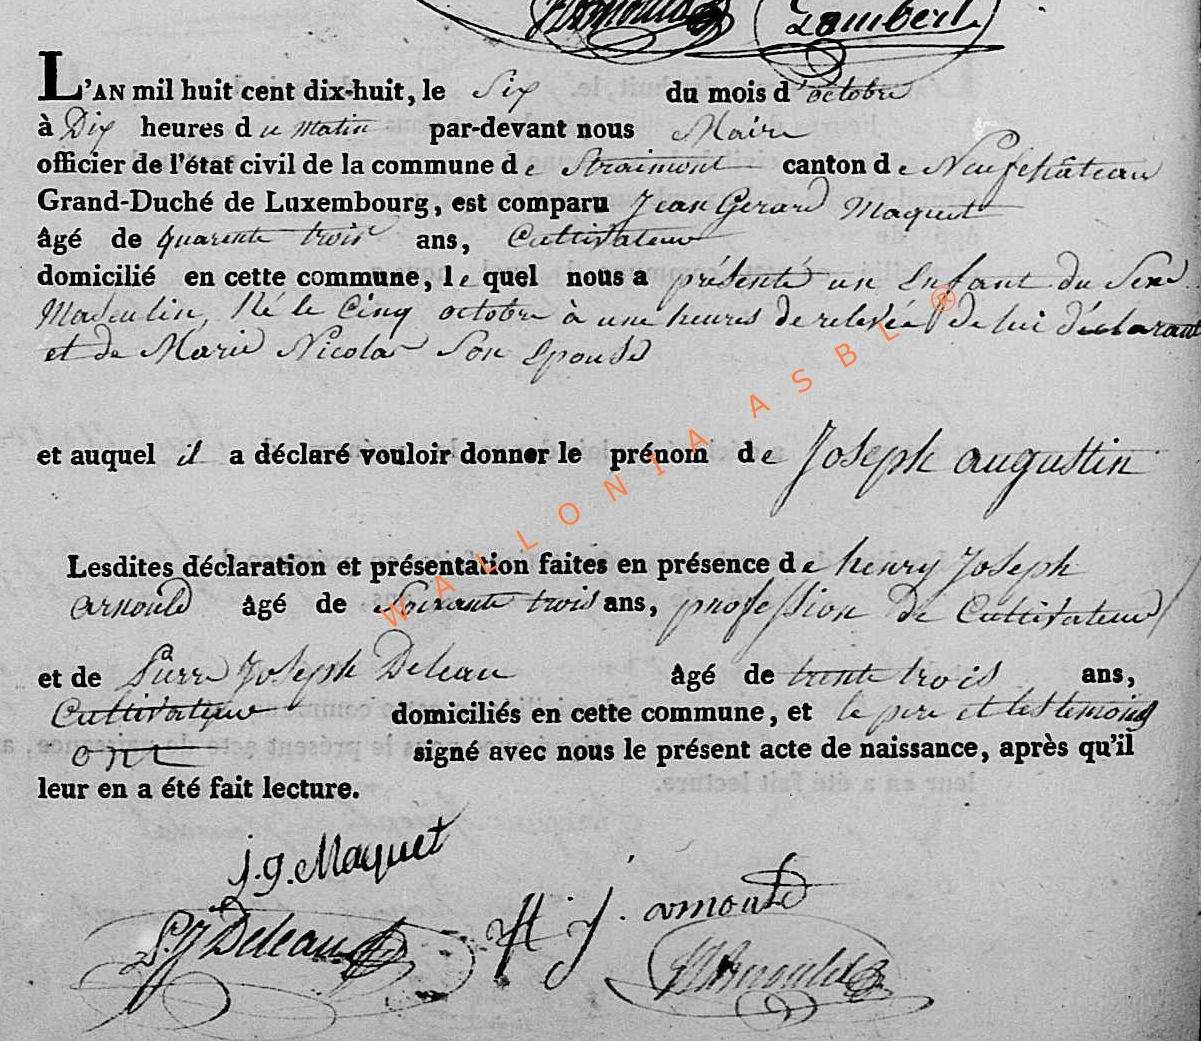 Lambert
L'AN mil huit cent dix-huit, le Six du mois d'octobre
à Dix heures du matin par-devant nous Maire
officier de l'état civil de la commune de Straimont canton de Neufchâteau
Grand-Duché de Luxembourg, est comparu Jean Gerard Maquet
âgé de quarente trois ans, Cultivateur
domicilié en cette commune, lequel nous a présenté un Enfant du Sexe
Masculin, Né le Cinq octobre à une heures de relevée de lui déclarant
et de Marie Nicolas Son Epouse
et auquel il a déclaré vouloir donner le prénom de Joseph augustin
Lesdites déclaration et présentation faites en présence de henry Joseph
arnould âgé de Soixante trois ans, profession de Cultivateur
et de Pierre Joseph Deleau âgé de trente trois ans,
Cultivateur domiciliés en cette commune, et le pere et les temoins
ont signé avec nous le présent acte de naissance, après qu'il
leur en a été fait lecture.
j.g. Maquet
P.J Deleau H J. arnould
WALLONIA ASBL ®